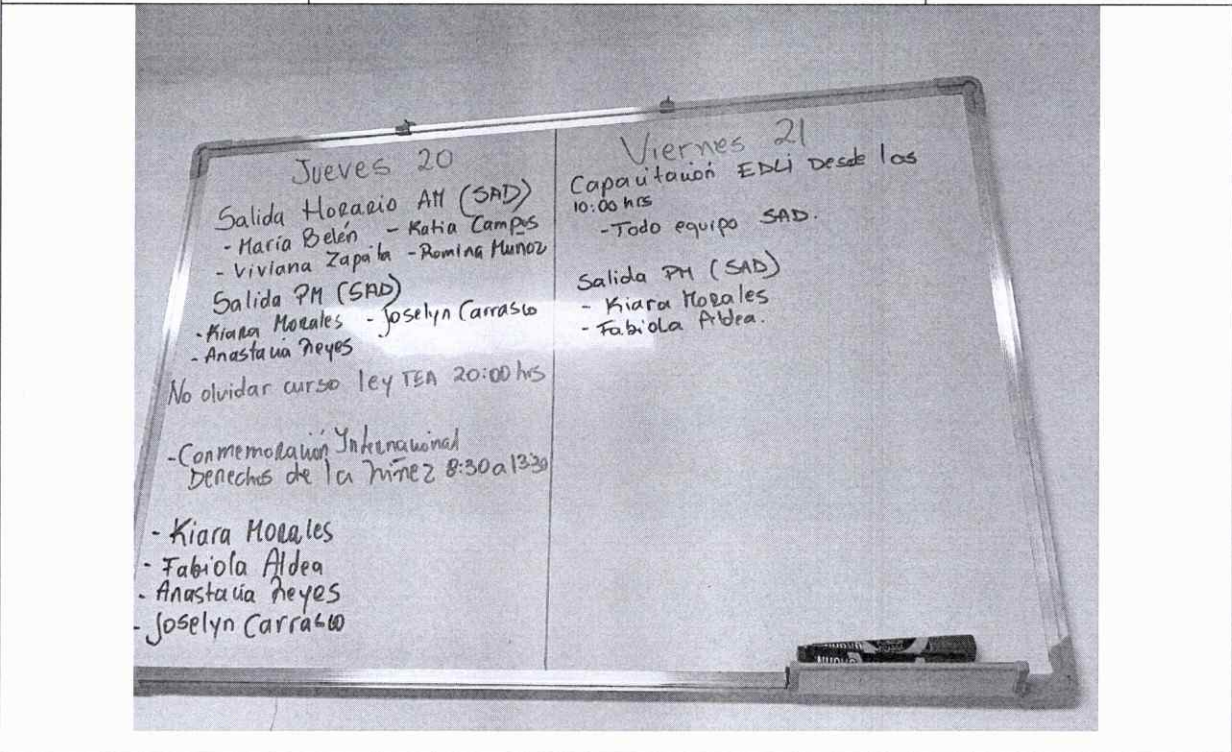 Jueves 20
Salida Horario AM (SAD)
- María Belén - Katia Campos
- Viviana Zapata - Romina Munoz
Salida PM (SAD)
- Kiara Morales - Joselyn Carrasco
- Anastacia Reyes
No olvidar curso ley TEA 20:00 hrs
- Conmemoración Internacional
Derechos de la niñez 8:30 a 13:30
- Kiara Morales
- Fabiola Aldea
- Anastacia Reyes
- Joselyn Carrasco
Viernes 21
Capacitación EDLI Desde las
10:00 hrs
- Todo equipo SAD.
Salida PM (SAD)
- Kiara Morales
- Fabiola Aldea.